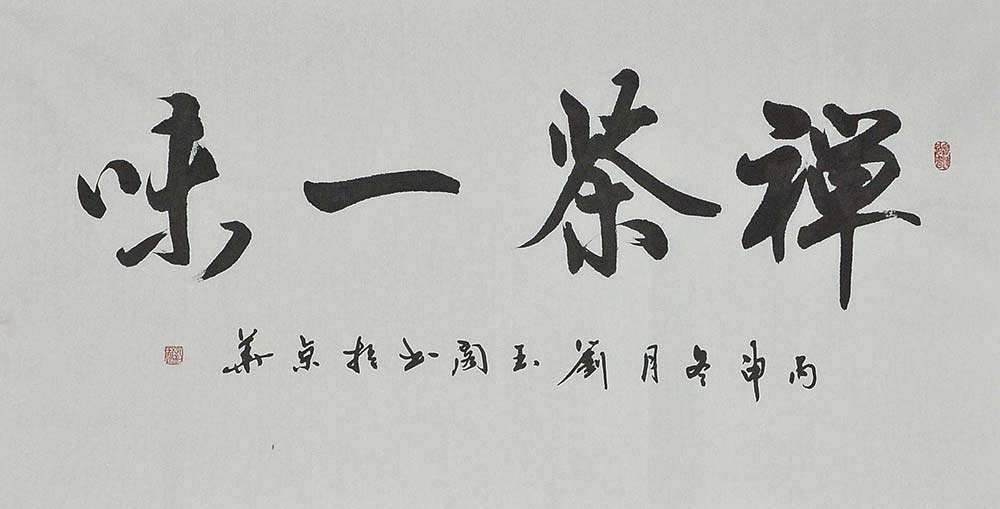 禅茶一味
丙申冬月劉玉閣书於京華